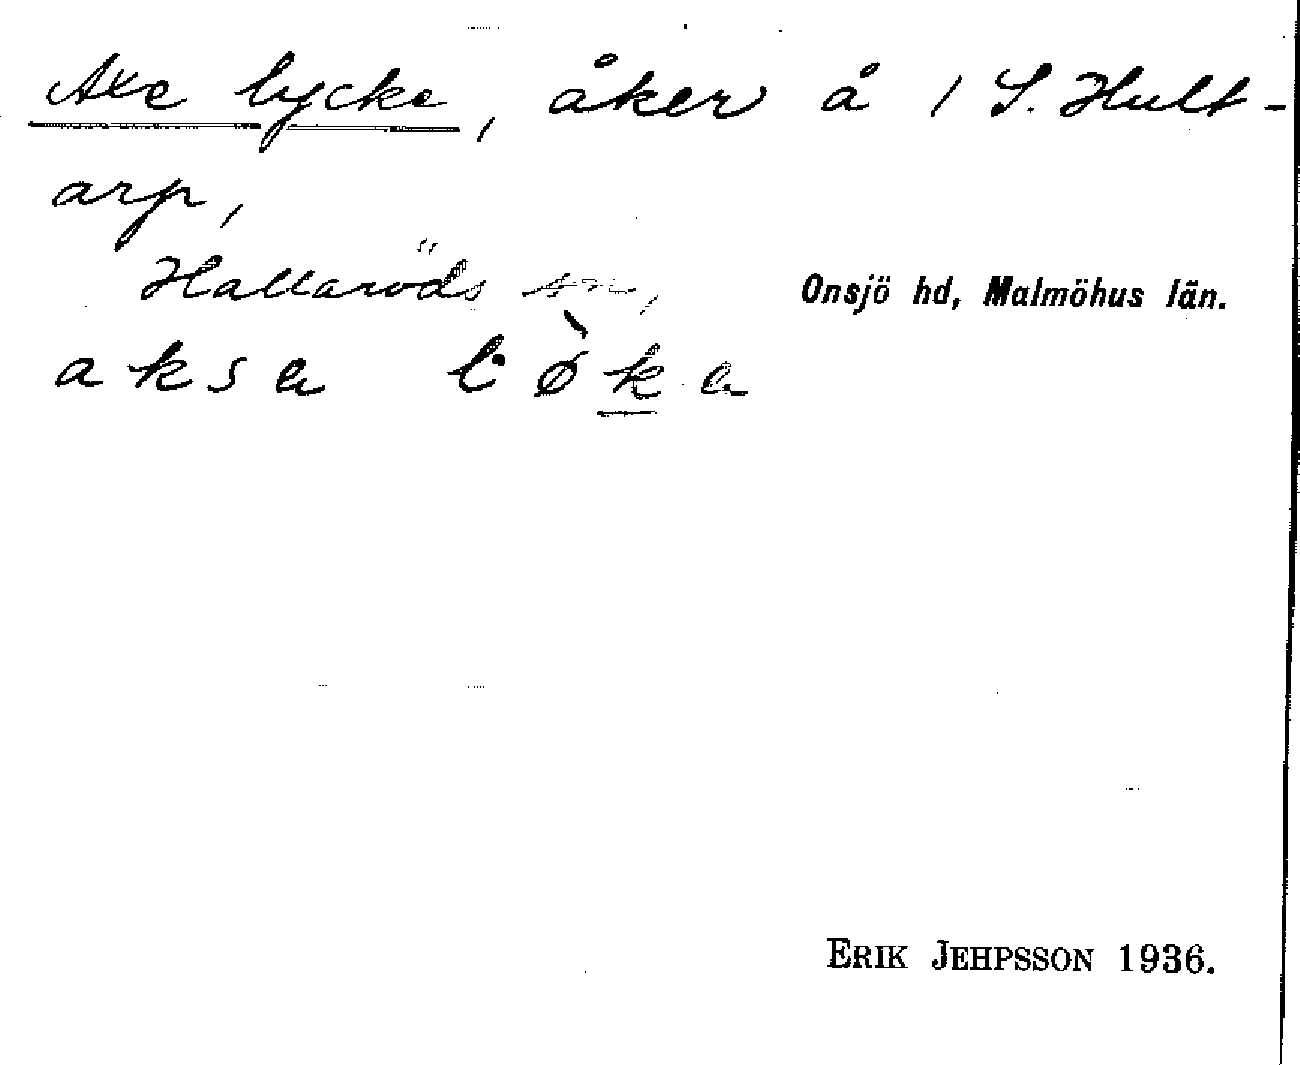 Axe lycke, åker å 1 S. Hult-
arp,
Hallaröds sn, Onsjö hd, Malmöhus län.
aksa
ERIK JEHPSSON 1936.